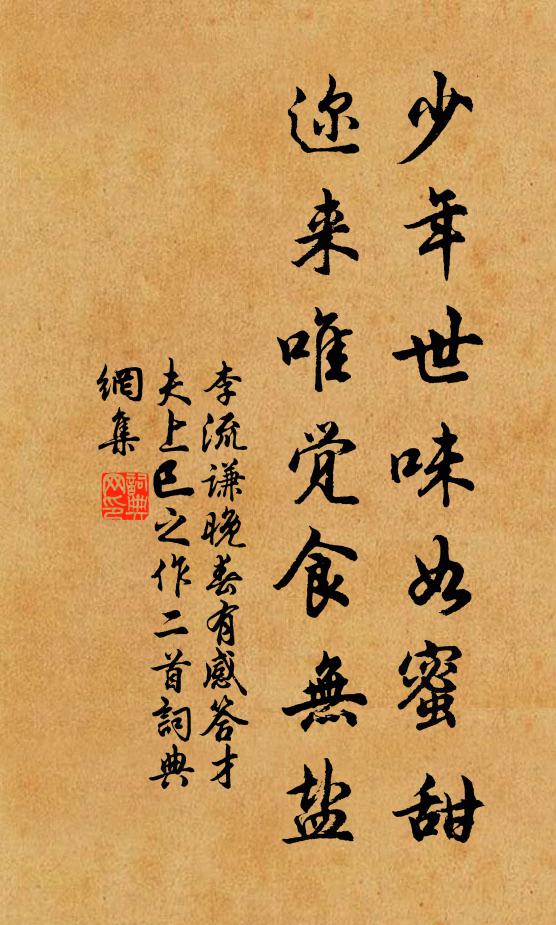 少年世味如蜜甜
迩来唯觉食無盐
李流谦晚春有感答才
夫上巳之作二首詞典
網集
詞典
网印